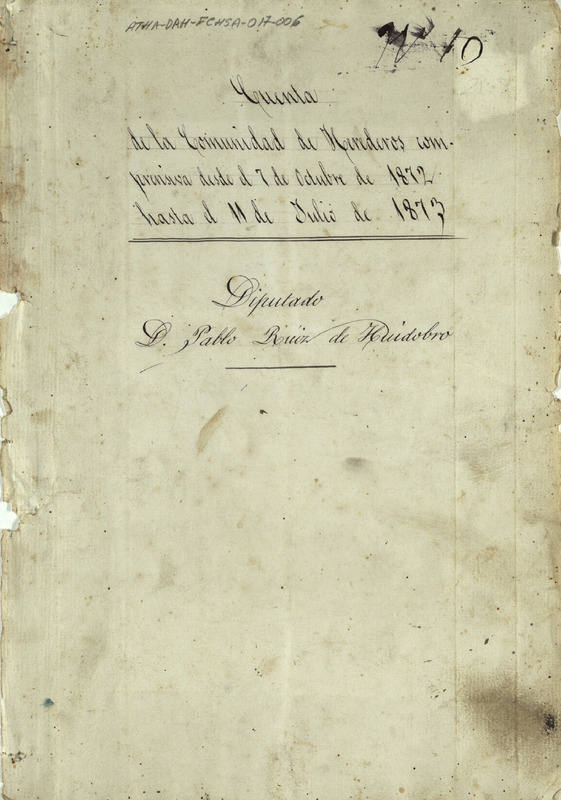 ATHA-DAH-FCHSA-017-006
Nº 10
Cuenta
de la Comunidad de Herederos com-
prensiva desde el 7 de Octubre de 1872
hasta el 11 de Julio de 1873
Diputado
D. Pablo Ruiz de Huidobro